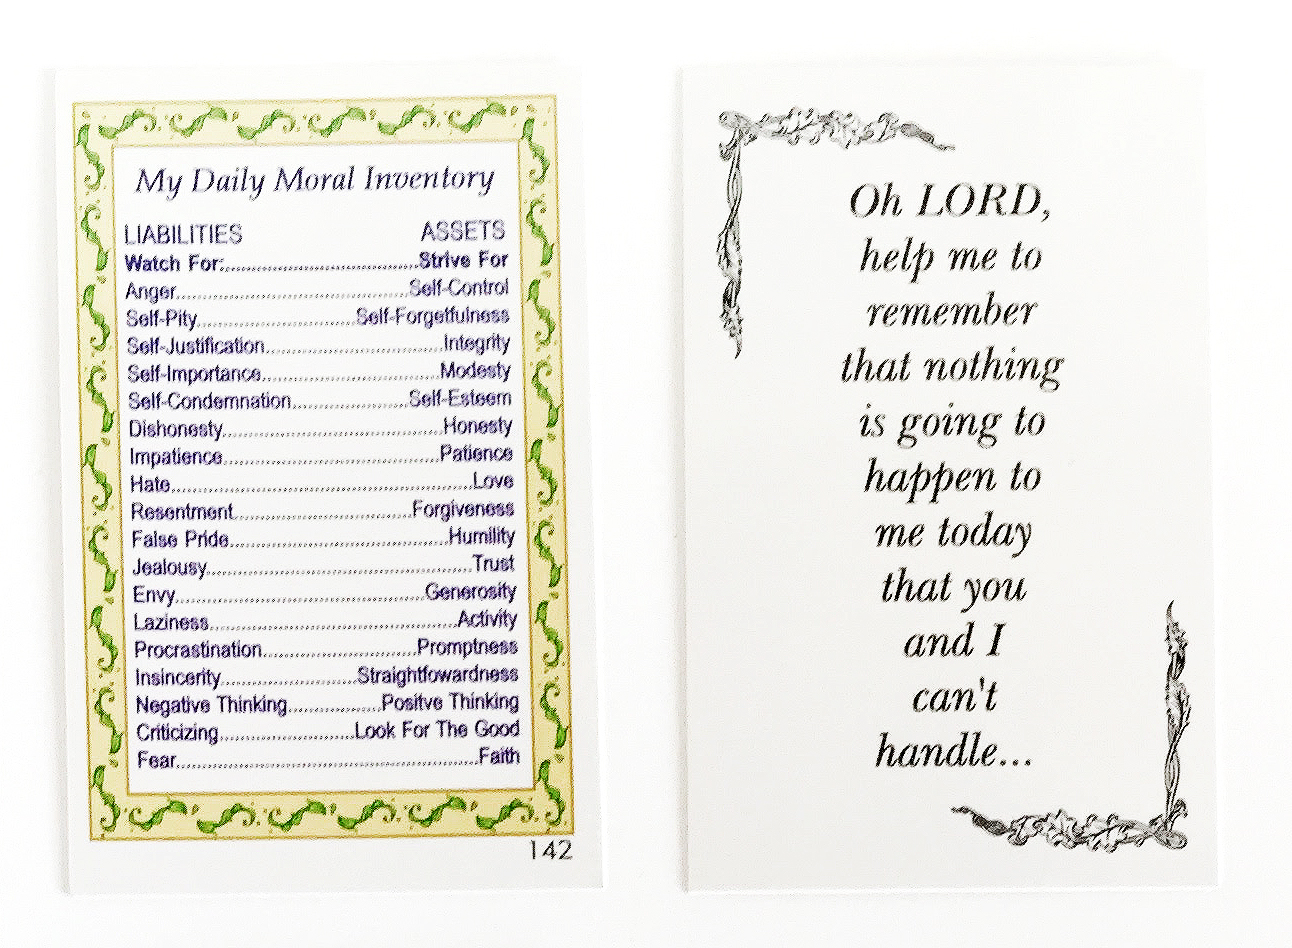 My Daily Moral Inventory
LIABILITIES ASSETS
Watch For:..............................Strive For
Anger..............................Self-Control
Self-Pity..............................Self-Forgetfulness
Self-Justification..............................Integrity
Self-Importance..............................Modesty
Self-Condemnation....................Self-Esteem
Dishonesty..............................Honesty
Impatience..............................Patience
Hate..............................Love
Resentment..............................Forgiveness
False Pride..............................Humility
Jealousy..............................Trust
Envy..............................Generosity
Laziness..............................Activity
Procrastination..............................Promptness
Insincerity..............................Straightfowardness
Negative Thinking....................Positve Thinking
Criticizing..............................Look For The Good
Fear..............................Faith
142
Oh LORD,
help me to
remember
that nothing
is going to
happen to
me today
that you
and I
can't
handle...